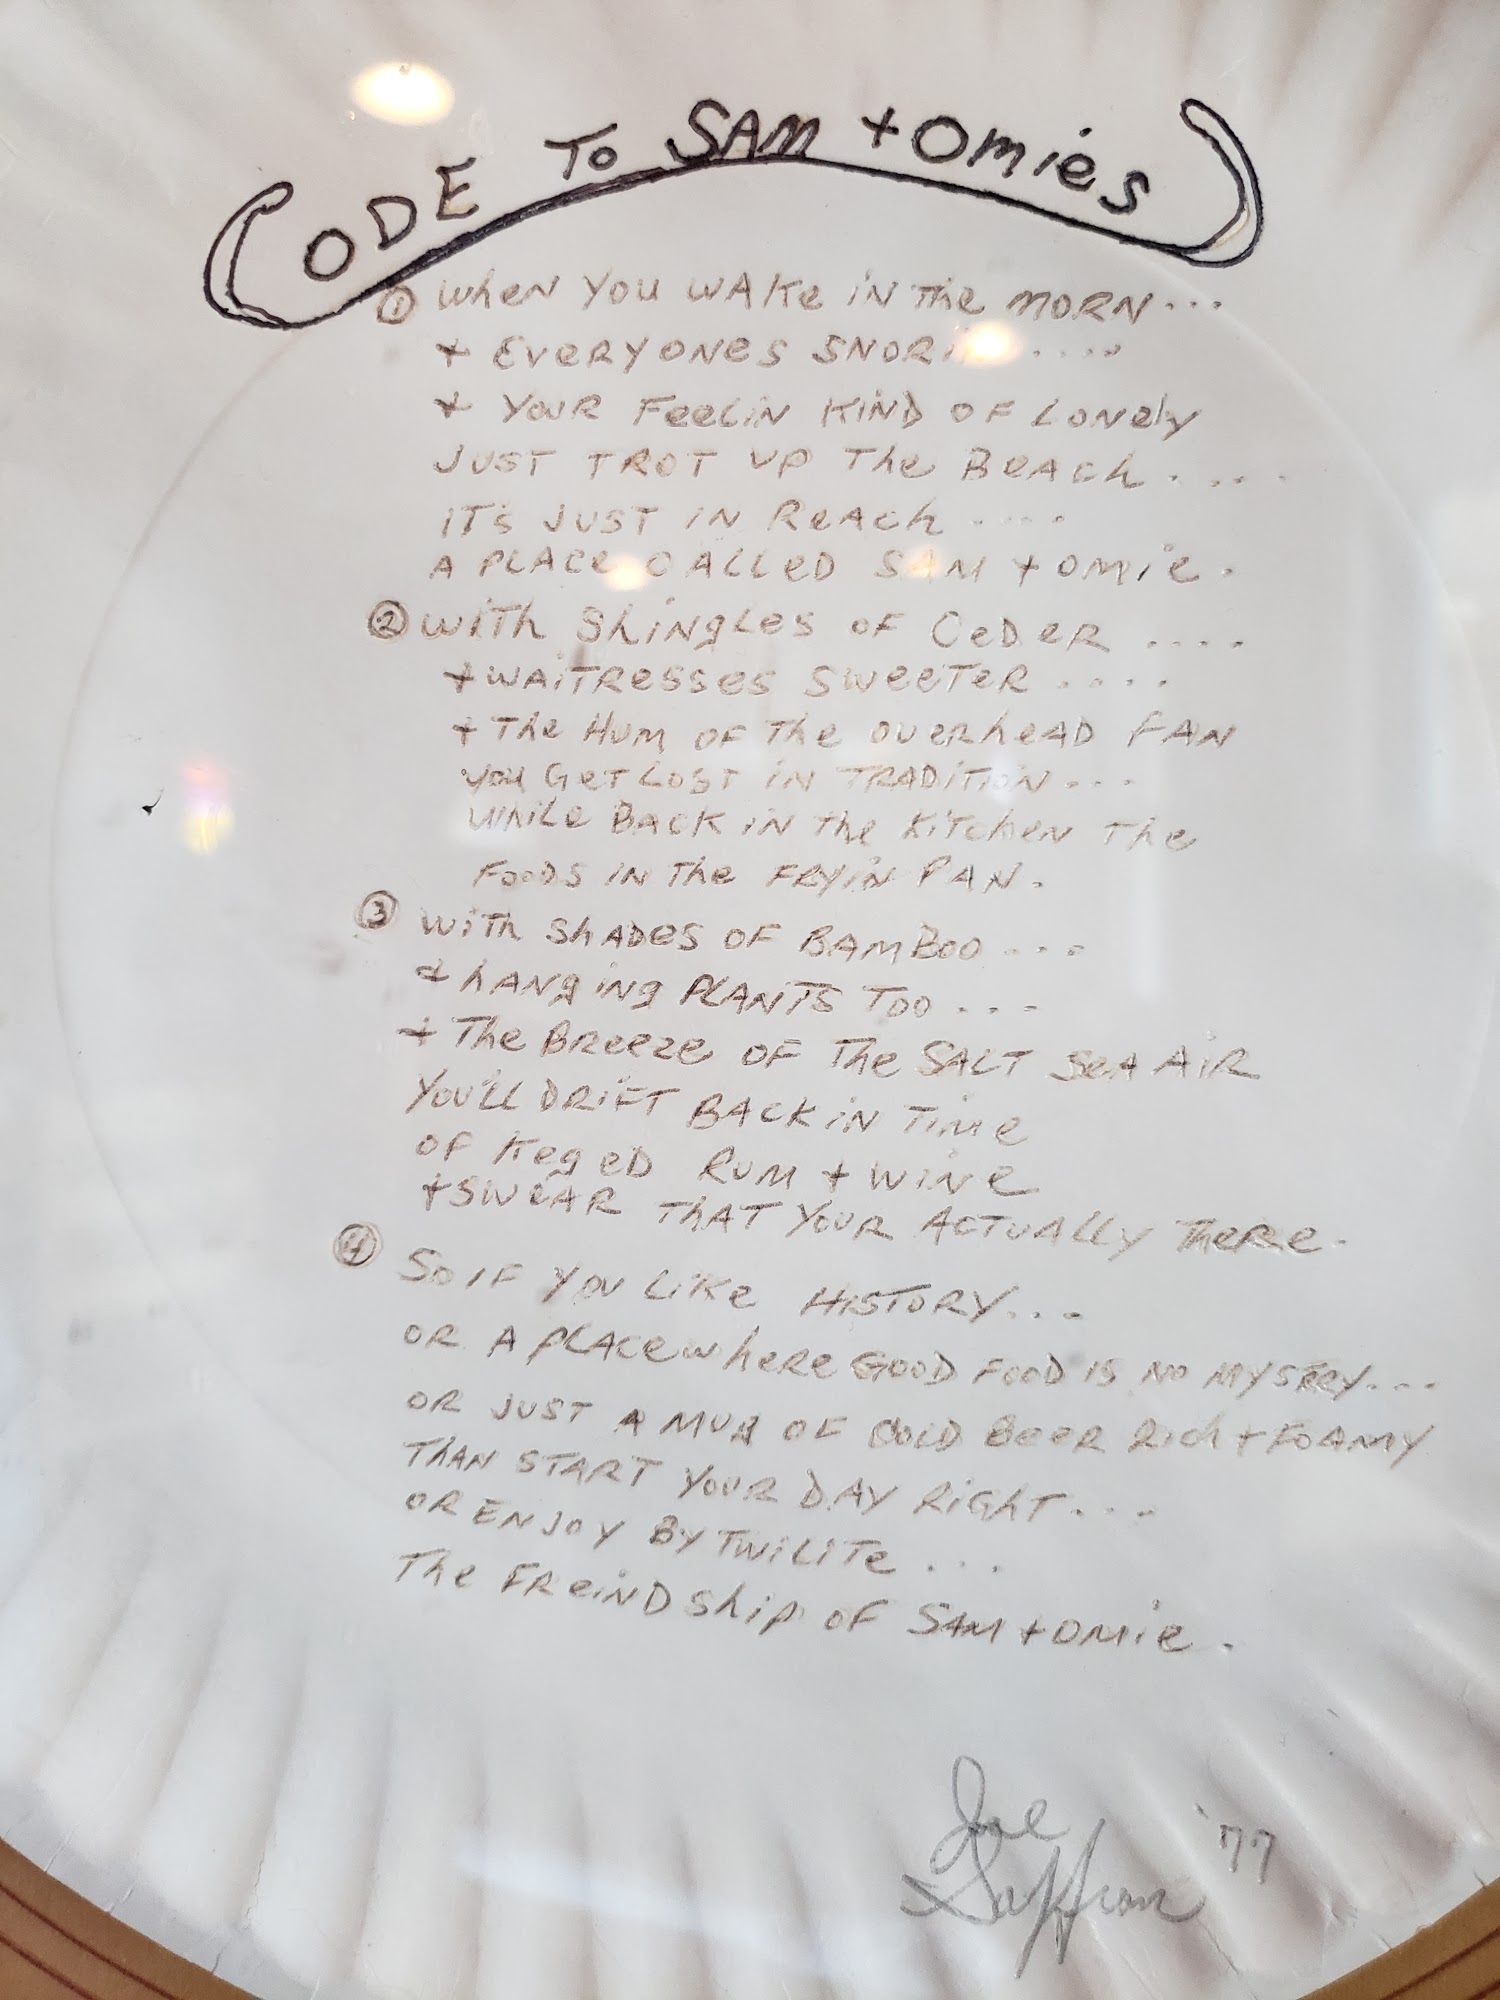 ODE TO SAM + OMIES
① WHEN YOU WAKE IN THE MORN...
+ EVERYONES SNORIN ....
+ YOUR FEELIN KIND OF LONELY
JUST TROT UP THE BEACH ....
IT'S JUST IN REACH ....
A PLACE CALLED SAM + OMIE.
② WITH SHINGLES OF CEDER ....
+ WAITRESSES SWEETER ....
+ THE HUM OF THE OVERHEAD FAN
YOU GET LOST IN TRADITION ...
WHILE BACK IN THE KITCHEN THE
FOODS IN THE FRYIN PAN.
③ WITH SHADES OF BAMBOO ...
+ HANGING PLANTS TOO ...
+ THE BREEZE OF THE SALT SEA AIR
YOU'LL DRIFT BACK IN TIME
OF KEGED RUM + WINE
+ SWEAR THAT YOUR ACTUALLY THERE.
④ SO IF YOU LIKE HISTORY...
OR A PLACE WHERE GOOD FOOD IS NO MYSTERY...
OR JUST A MUG OF COLD BEER RICH + FOAMY
THAN START YOUR DAY RIGHT...
OR ENJOY BY TWILITE ...
THE FREINDSHIP OF SAM + OMIE.
Joe
Saffron '77